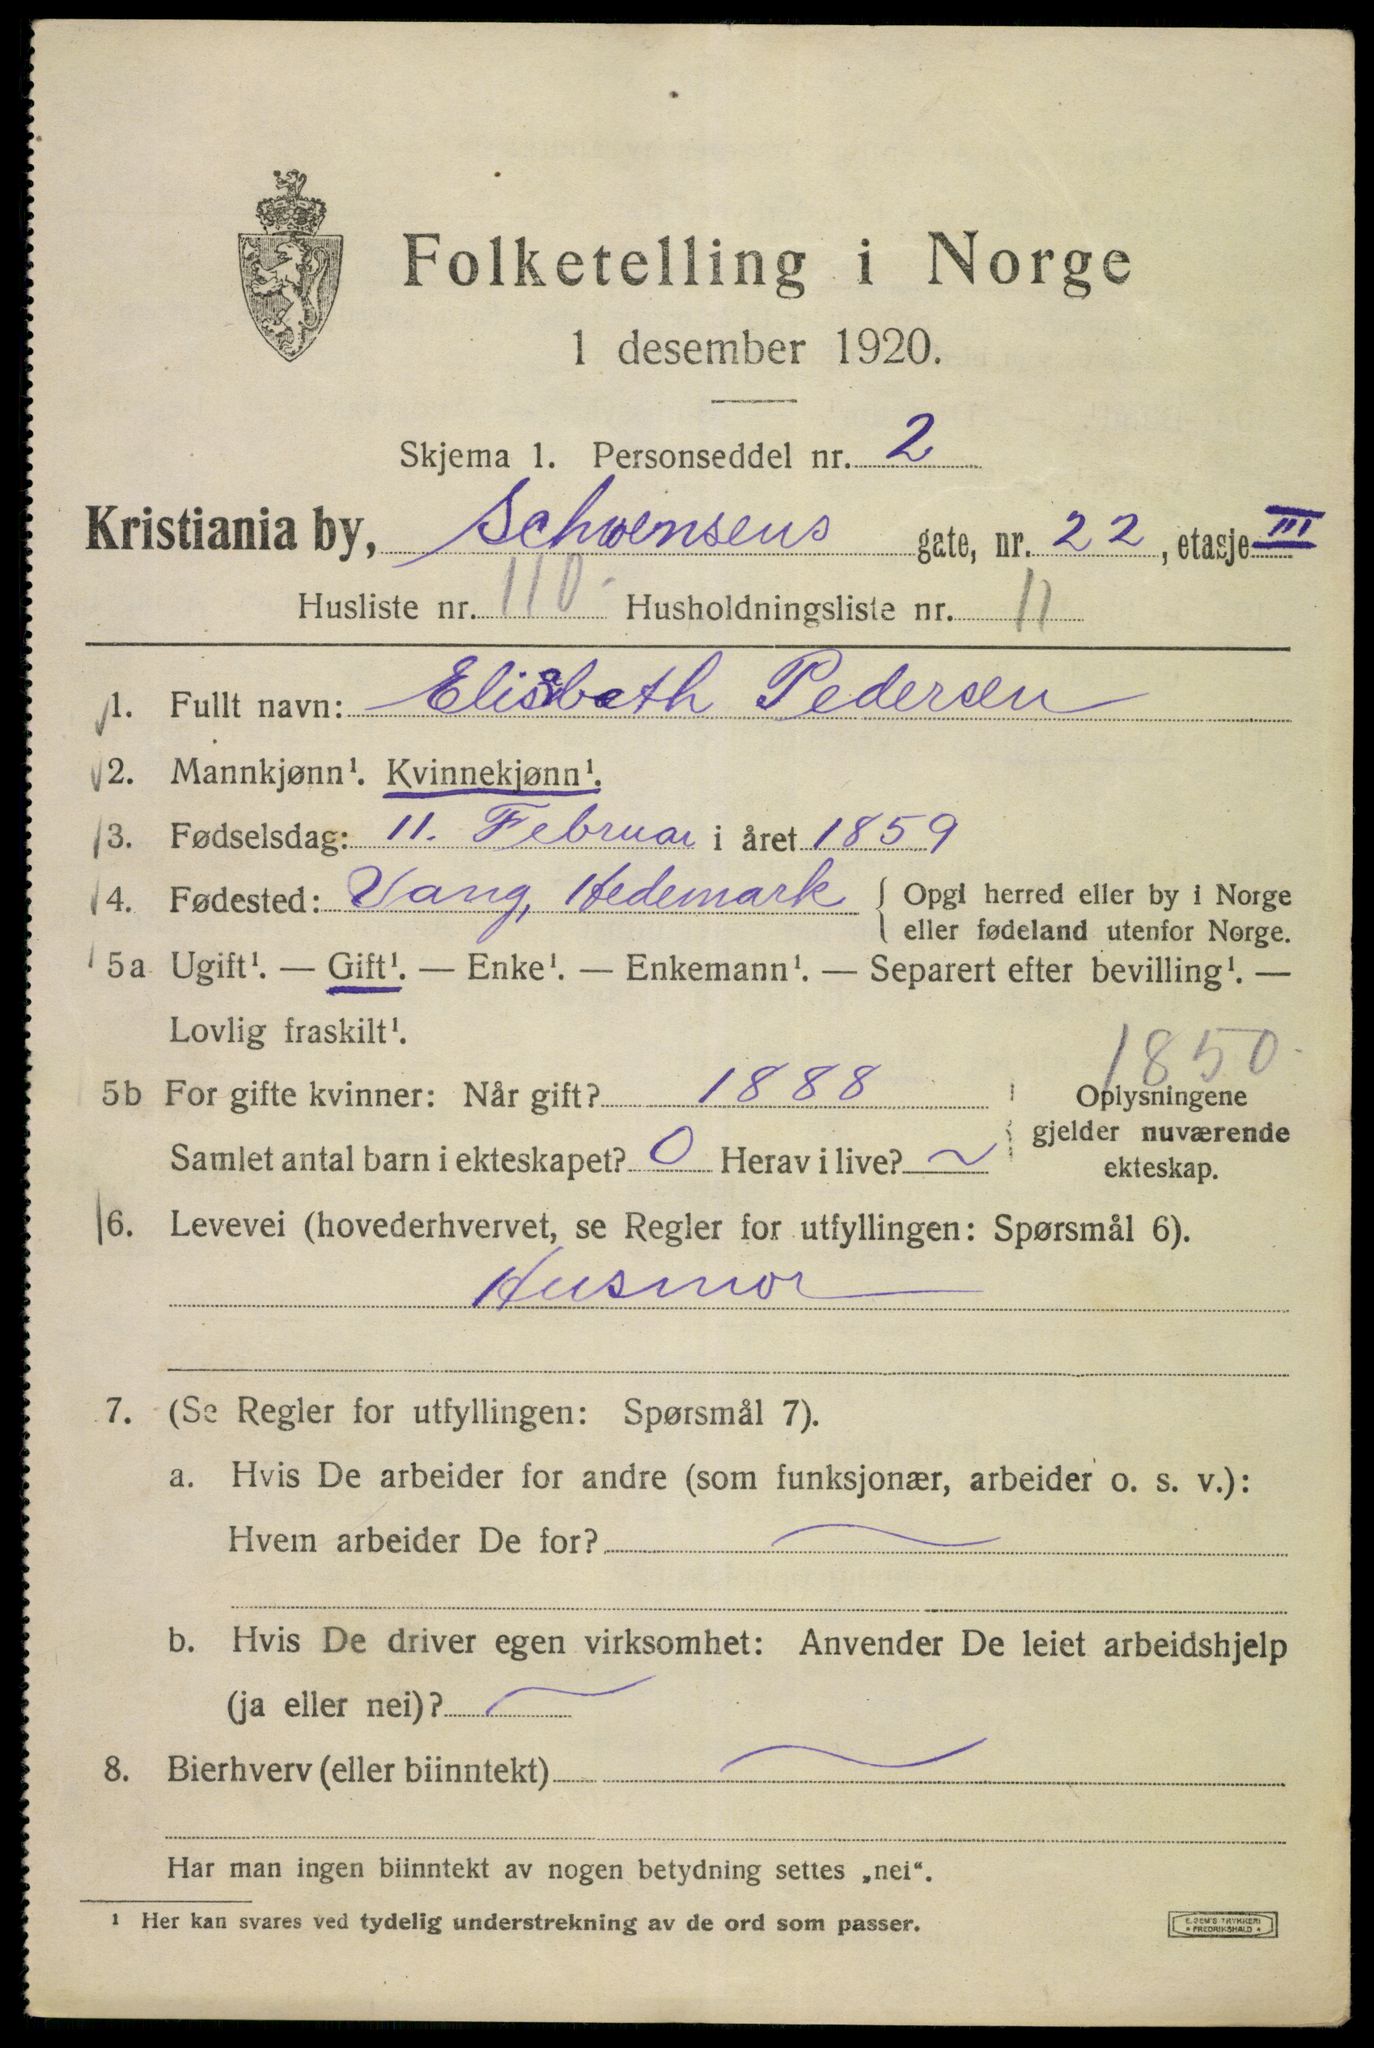 Folketelling i Norge
1 desember 1920.
Skjema 1. Personseddel nr. 2
Kristiania by, Schwensens gate, nr. 22, etasje III
Husliste nr. 110. Husholdningsliste nr. 11
1. Fullt navn: Elisbeth Pedersen
2. Mannkjønn¹. Kvinnekjønn¹.
3. Fødselsdag: 11. Februar i året 1859
4. Fødested: Vang, Hedemark { Opgi herred eller by i Norge
eller fødeland utenfor Norge.
5a Ugift¹. — Gift¹. — Enke¹. — Enkemann¹. — Separert efter bevilling¹. —
Lovlig fraskilt¹.
1850.
5b For gifte kvinner: Når gift? 1888 Oplysningene
gjelder nuværende
Samlet antal barn i ekteskapet? 0 Herav i live? ~
ekteskap.
6. Levevei (hovederhvervet, se Regler for utfyllingen: Spørsmål 6).
Husmor
7. (Se Regler for utfyllingen: Spørsmål 7).
a. Hvis De arbeider for andre (som funksjonær, arbeider o. s. v.):
Hvem arbeider De for? ~
b. Hvis De driver egen virksomhet: Anvender De leiet arbeidshjelp
(ja eller nei)? ~
8. Bierhverv (eller biinntekt) ~
Har man ingen biinntekt av nogen betydning settes „nei“.
¹ Her kan svares ved tydelig understrekning av de ord som passer.
E. SEM'S TRYKKERI
• FREDRIKSHALD •